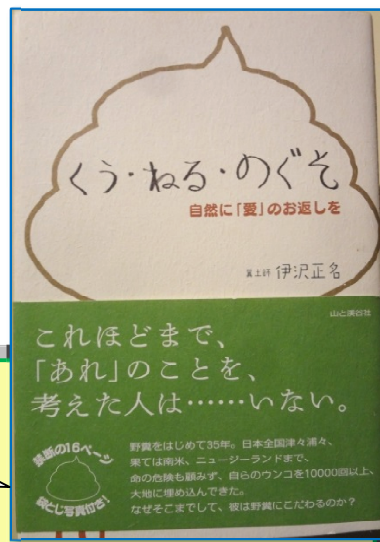 くう・ねる・のぐそ
自然に「愛」のお返しを
糞土師 伊沢正名
山と溪谷社
これほどまで、
「あれ」のことを、
考えた人は……いない。
禁断の16ページ
袋とじ写真付き！
野糞をはじめて35年。日本全国津々浦々、
果ては南米、ニュージーランドまで、
命の危険も顧みず、自らのウンコを10000回以上、
大地に埋め込んできた。
なぜそこまでして、彼は野糞にこだわるのか？